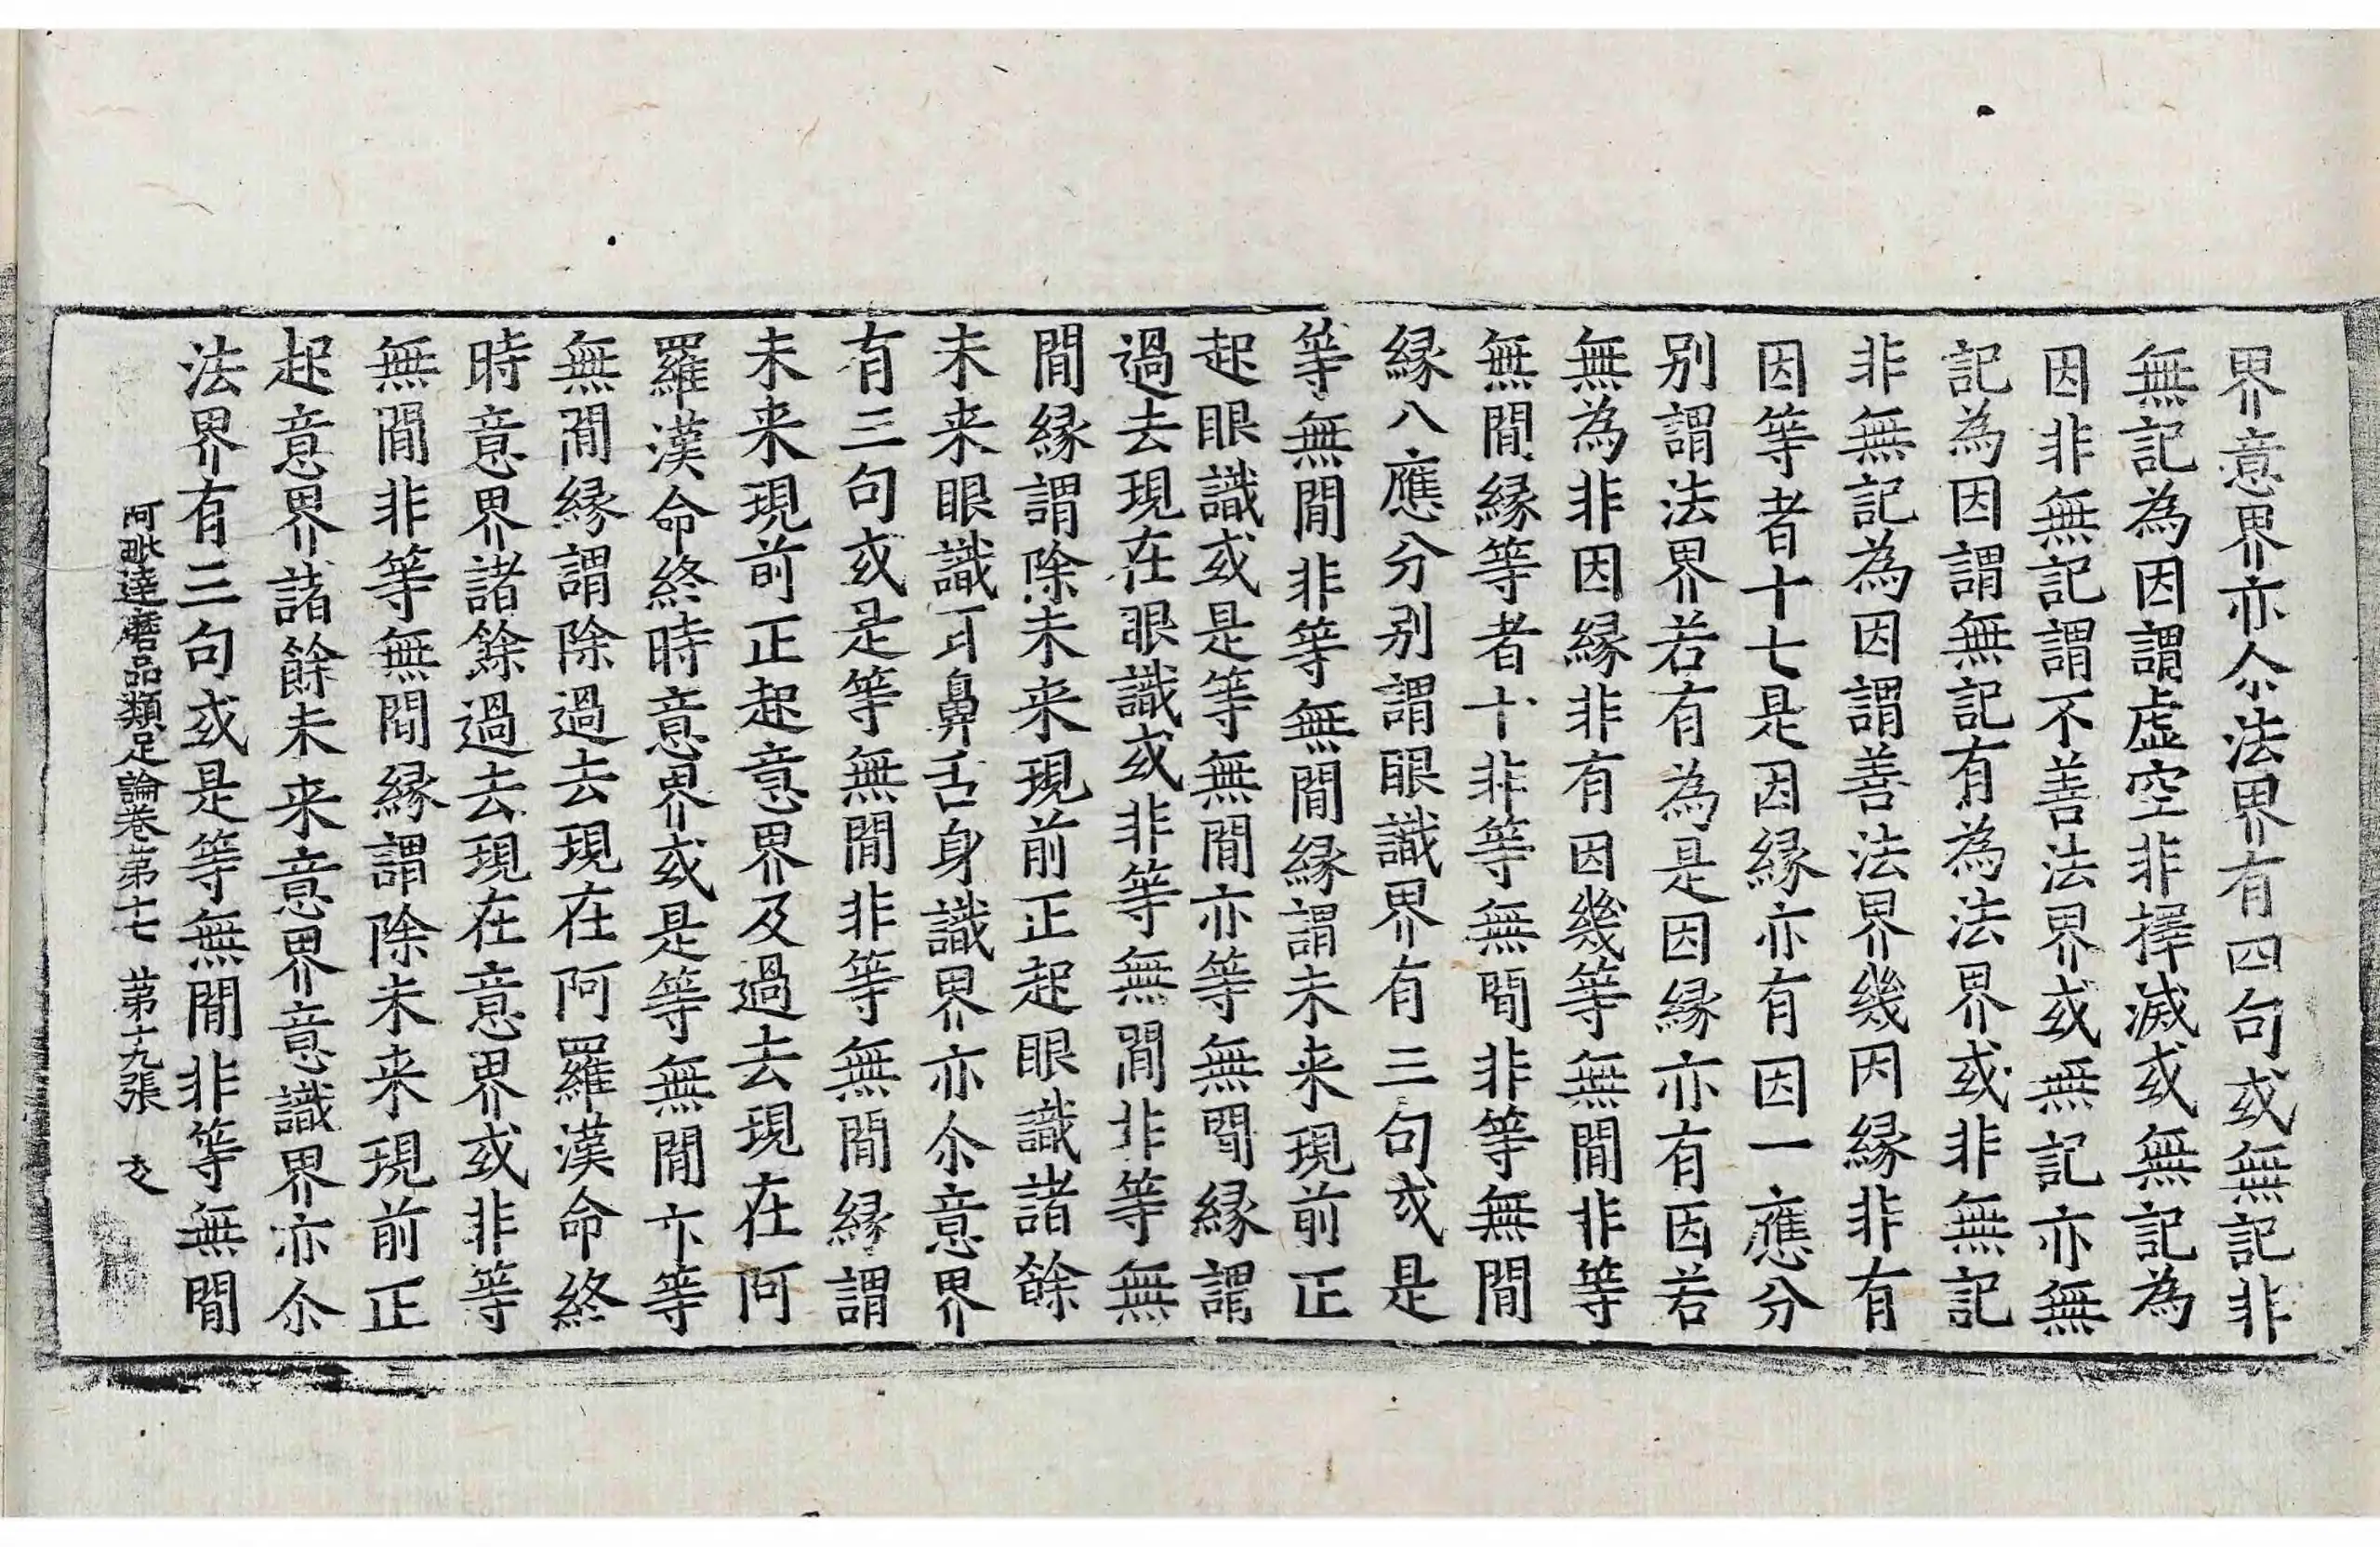 界意界亦尒法界有四句或無記非
無記為因謂虛空非擇滅或無記為
因非無記謂不善法界或無記亦無
記為因謂無記有為法界或非無記
非無記為因謂善法界幾因緣非有
因等者十七是因緣亦有因一應分
别謂法界若有為是因緣亦有因若
無為非因緣非有因幾等無間非等
無間緣等者十非等無間非等無間
緣八應分别謂眼識界有三句或是
等無間非等無間緣謂未来現前正
起眼識或是等無間亦等無間緣謂
過去現在眼識或非等無間非等無
間緣謂除未来現前正起眼識諸餘
未来眼識耳鼻舌身識界亦尒意界
有三句或是等無間非等無間緣謂
未来現前正起意界及過去現在阿
羅漢命終時意界或是等無間亦等
無間緣謂除過去現在阿羅漢命終
時意界諸餘過去現在意界或非等
無間非等無間緣謂除未来現前正
起意界諸餘未来意界意識界亦尒
法界有三句或是等無間非等無間
阿毗達磨品類足論卷第十七 第十九張 攴